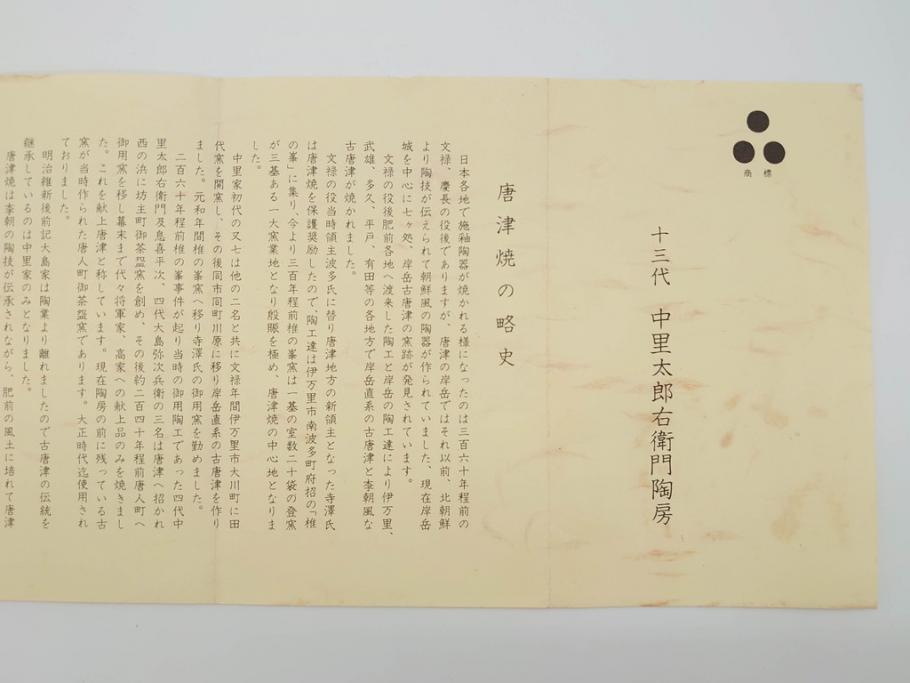 商標
十三代 中里太郎右衛門陶房
唐津焼の略史
日本各地で施釉陶器が焼かれる様になったのは三百六十年程前の
文禄、慶長の役後でありますが、唐津の岸岳ではそれ以前、北朝鮮
より陶技が伝えられて朝鮮風の陶器が作られていました、現在岸岳
城を中心に七ヶ処、岸岳古唐津の窯跡が発見されています。
文禄の役後肥前各地へ渡来した陶工と岸岳の陶工達により伊万里、
武雄、多久、平戸、有田等の各地方で岸岳直系の古唐津と李朝風な
古唐津が焼かれました。
文禄の役当時領主波多氏に替り唐津地方の新領主となった寺澤氏
は唐津焼を保護奨励したので、陶工達は伊万里市南波多町府招の「椎
の峯」に集り、今より三百年程前椎の峯窯は一基の室数二十袋の登窯
が三基ある一大窯業地となり殷賑を極め、唐津焼の中心地となりま
した。
中里家初代の又七は他の二名と共に文禄年間伊万里市大川町に田
代窯を開窯し、その後同市同町川原に移り岸岳直系の古唐津を作り
ました。元和年間椎の峯窯へ移り寺澤氏の御用窯を勤めました。
二百六十年程前椎の峯事件が起り当時の御用陶工であった四代中
里太郎右衛門及息喜平次、四代大島弥次兵衛の三名は唐津へ招かれ
西の浜に坊主町御茶盌窯を創め、その後約二百四十年程前唐人町へ
御用窯を移し幕末まで代々将軍家、高家への献上品のみを焼きまし
た。これを献上唐津と称しています。現在陶房の前に残っている古
窯が当時作られた唐人町御茶盌窯であります。大正時代迄使用され
ておりました。
明治維新後前記大島家は陶業より離れましたので古唐津の伝統を
継承しているのは中里家のみとなりました。
唐津焼は李朝の陶技が伝承されながら、肥前の風土に培れて唐津